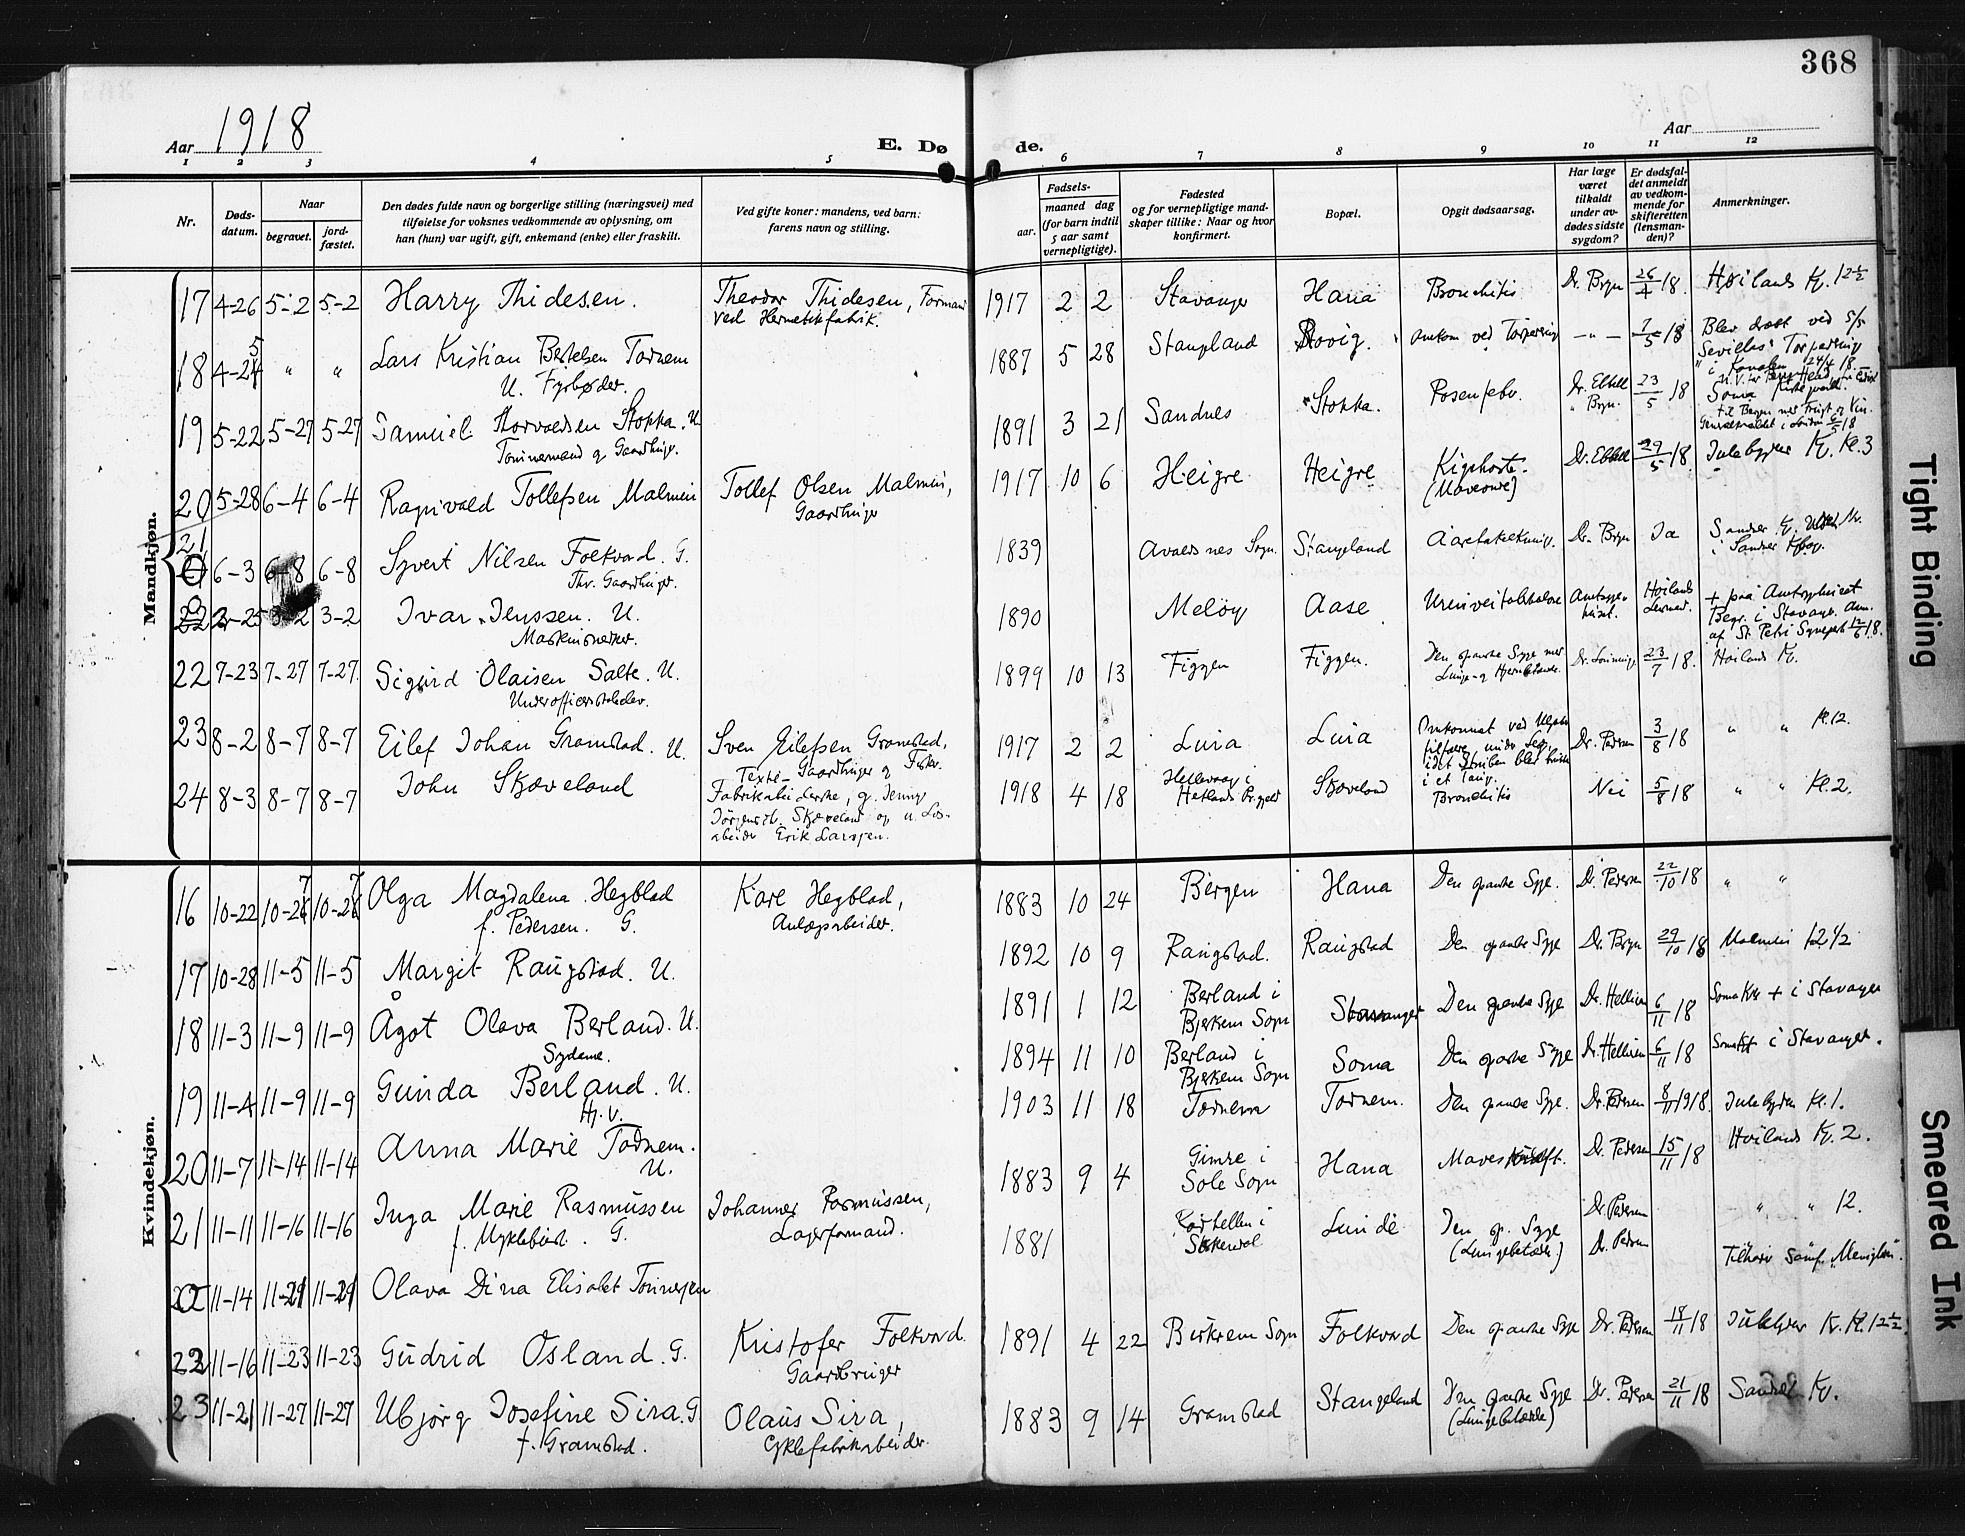 368
Aar 1918
E. Døde.
Aar
1 2 3 4 5 6 7 8 9 10 11 12
Nr.
Døds-datum.
Naar
begravet.
jord-fæstet.
Den dødes fulde navn og borgerlige stilling (næringsvei) med
tilføielse for voksnes vedkommende av oplysning, om
han (hun) var ugift, gift, enkemand (enke) eller fraskilt.
Ved gifte koner: mandens, ved barn:
farens navn og stilling.
Fødsels-
aar. maaned dag
(for barn indtil
5 aar samt
vernepligtige).
Fødested
og for vernepligtige mand-
skaper tillike: Naar og hvor
konfirmert.
Bopæl.
Opgit dødsaarsag.
Har læge
været
tilkaldt
under av-
dødes sidste
sygdom?
Er dødsfal-
det anmeldt
av vedkom-
mende for
skifteretten
(lensman-
den)?
Anmerkninger.
Mandkjøn.
17 4-26 5-2 5-2 Harry Thidesen. Theodor Thidesen, Formand 1917 2 2 Stavanger Hana Bronchitis Dr. Bryn 26/4 18. Høilands K. 12½
ved Hermetikfabrik.
18 4-24 " " Lars Kristian Bertelsen Tornem 1887 5 28 Stangland Rovig. omkom ved Torpedering -"- 7/5 18 Blev dræbt ved
U. Fyrbøder.
Sevillas Torpedering
i Kanalen 24/4 18.
19 5-22 5-27 5-27 Samuel Thorvaldsen Stokka. U 1891 3 21 Sandnes Stokka. Rosenfeber. Dr. Ebbell 23/5 18 Soma
Tominemand og Gaardbruger.
" Bryn.
20 5-28 6-4 6-4 Ragnvald Tollefsen Malmein Tollef Olsen Malmein, 1917 10 6 Heigre Heigre Kighoste. Dr. Ebbell 29/5 18. Julebygden K. Kl. 3
Gaardbruger
21 6-3 6-8 6-8 Syvert Nilsen Folkvord. G. 1839 Avaldsnes Sogn. Stangland Aareforkalkning. Dr. Bryn Ja
Fhv. Gaardbruger.
2-25 3-2 3-2 Ivar Jenssen. U. 1890 Meløy Aase
Maskinsnedker.
Høilands
Lensmd.
+ paa Amtssykehuset
Begr. i Stavanger. Anm.
af St. Petri Sogneprest 12/6 18.
22 7-23 7-27 7-27. Sigurd Olaisen Salte. U. 1899 10 13 Figgen Figgen. Den spanske Syge med 23/7 18. Høilands K.
Underofficerselev.
Lunge- og Hjernebetændelse.
23 8-2 8-7 8-7 Eilef Johan Gramstad. U. Sven Eilefsen Gramstad, 1917 2 2 Lura Lura Omkommet ved Ulykkes Dr. Pedersen 3/8 18 " " Kl. 12.
Gaardbruger og Fisker.
24 8-3 8-7 8-7 John Skjæveland 1918 4 18 Skjæveland Bronchitis Nei 5/8 18 " " Kl. 2.
Fabrikarbeiderske, g. Jenny
Jørgensdt. Skjæveland og u. Løs-
arbeider Erik Larssen.
Kvindekjøn.
16 10-22 10-27 10-27 Olga Magdalena Hegblad Kåre Hegblad, 1883 10 24 Bergen Hana Den spanske Syge. Dr. Pedersen 22/10 18 " "
f. Pedersen. G. Anlægsarbeider.
17 10-28 11-5 11-5 Margit Raugstad. U. 1892 10 9 Raugstad. Raugstad Den spanske Syge Dr. Bryn 29/10 18 Malmein 12½
18 11-3 11-9 11-9 Ågot Olava Berland. U. 1891 1 12 Berland i Stavanger Den spanske Syge Dr. Hellisen 6/11 18 Soma Kg + i Stavanger
Sydame. Bjerkem Sogn
19 11-4 11-9 11-9 Gunda Berland. U. 1894 11 10 Berland i Soma Den spanske Syge Dr. Hellisen 6/11 18 Soma i Stavanger.
Hj. v. Bjerkem Sogn
20 11-7 11-14 11-14 Anna Marie Tornem. 1903 11 18 Tornem Tornem. Den spanske Syge. Dr. Pedersen 8/11 1918. Julebygden Kl. 1.
U.
21 11-11 11-16 11-16 Inga Marie Rasmussen Johannes Rasmussen, 1883 9 4 Gimre i Hana Mavekræft. Dr. Pedersen 15/11 18 Høilands K. 2.
f. Myklebust. G. Lagerformand. Sole Sogn
11-14 11-21 11-21 Olava Dina Elisabet Tønnesen 1881 Lunde Den sp. Syge Dr. Pedersen " " 12.
(Lungebetændelse) Dr. Pedersen
22 11-16 11-23 11-23 Gudrid Osland. G. Kristofer Folkvord 1891 4 22 Birkrem Sogn Folkvord Den spanske Syge Dr. Pedersen 18/11 18 Julebygden K. Kl. 12½.
Gaardbruger
23 11-21 11-27 11-27 Ubjørg Josefine Sira. G. Olaus Sira, 1883 9 14 Gramstad Stangeland Den spanske Syge Dr. Pedersen 21/11 18 Sandnes K.
f. Gramstad. Cyklefabrikarbeider. (Lungebetændelse)
Tight Binding
Smeared Ink